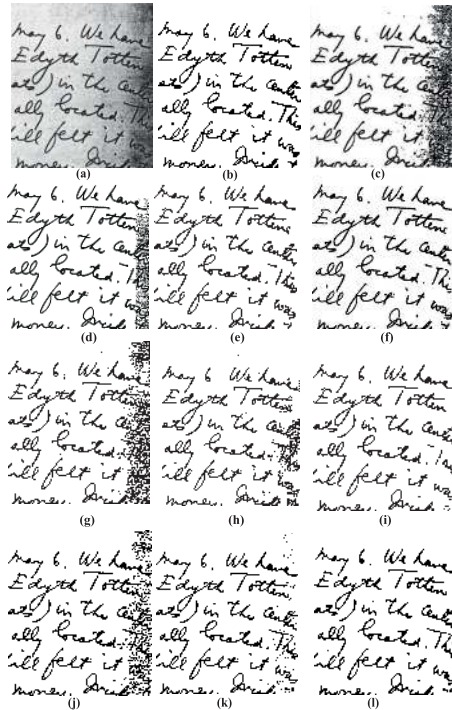 may 6. We have
Edyth Totten
ats) in the Center
ally located. This
ill felt it was
money.
(a)
may 6. We have
Edyth Totten
ats) in the Center
ally located. This
ill felt it was
money.
(b)
may 6. We have
Edyth Totten
ats) in the
ally located.
ill felt it
money.
(c)
may 6. We have
Edyth Totten
ats) in the
ally located.
ill felt it
money.
(d)
may 6. We have
Edyth Totten
ats) in the Center
ally located. This
ill felt it was
money.
(e)
may 6. We have
Edyth Totten
ats) in the Center
ally located. This
ill felt it was
money.
(f)
may 6. We have
Edyth Totten
ats) in the
ally located.
ill felt it
money.
(g)
may 6 We have
Edyth Totten
ats) in the
ally located.
ill felt it was
money.
(h)
may 6. We have
Edyth Totten
ats) in the Center
ally located.
ill felt it was
money.
(i)
may 6. We have
Edyth Totten
ats) in the
ally located.
ill felt it
money.
(j)
may 6. We have
Edyth Totten
ats) in the Center
ally located. This
ill felt it was
money.
(k)
may 6. We have
Edyth Totten
ats) in the Center
ally located. This
ill felt it was
money.
(l)